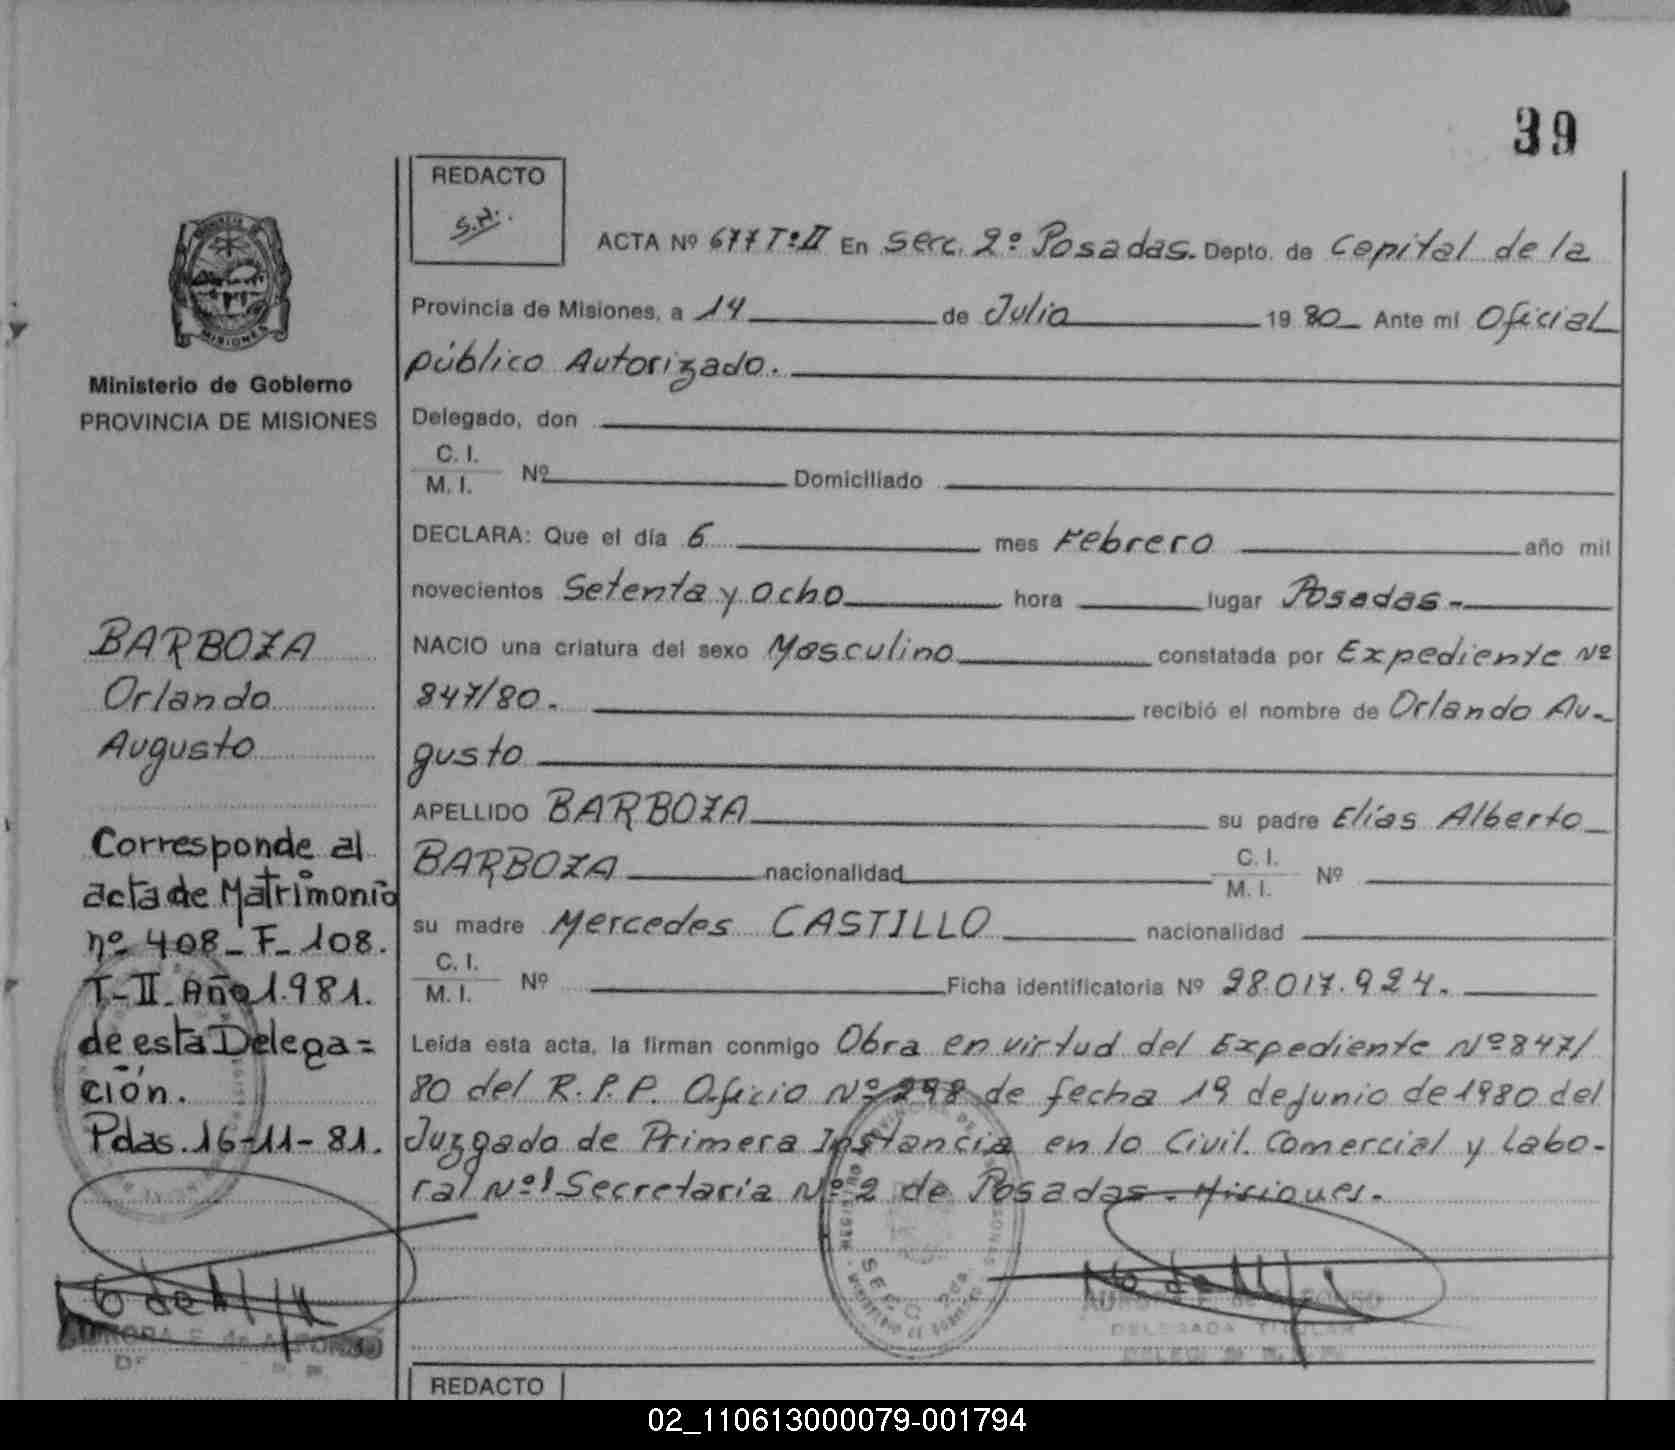 39
REDACTO
S.N.
ACTA Nº 677 Tº II En Secc. 2º Posadas. Depto. de Capital de la
Provincia de Misiones, a 14 de Julio 1980 Ante mi Oficial
público Autorizado.
Delegado, don
C. I.
M. I. Nº Domiciliado
DECLARA: Que el día 6 mes Febrero año mil
novecientos Setenta y Ocho hora lugar Posadas-
NACIO una criatura del sexo Masculino constatada por Expediente Nº
847/80. recibió el nombre de Orlando Au-
gusto
APELLIDO BARBOZA su padre Elías Alberto
BARBOZA nacionalidad C. I. M. I. Nº
su madre Mercedes CASTILLO nacionalidad
C. I.
M. I. Nº Ficha identificatoria Nº 28.017.924.
Leída esta acta, la firman conmigo Obra en virtud del Expediente Nº 847/
80 del R.P.P. Oficio Nº 298 de fecha 19 de Junio de 1980 del
Juzgado de Primera Instancia en lo Civil. Comercial y Labo-
ral Nº 1 Secretaria Nº 2 de Posadas - Misiones.
SECC. 2da.
AURORA E. de ALFONSO
DELEGADA TITULAR
REDACTO
PROVINCIA DE
MISIONES
Ministerio de Gobierno
PROVINCIA DE MISIONES
BARBOZA
Orlando
Augusto
Corresponde al
acta de Matrimonio
nº 408- F- 108.
T-II- Año 1.981.
de esta Delega=
ción.
Pdas. 16-11-81.
AURORA E. de ALFONSO
02_110613000079-001794